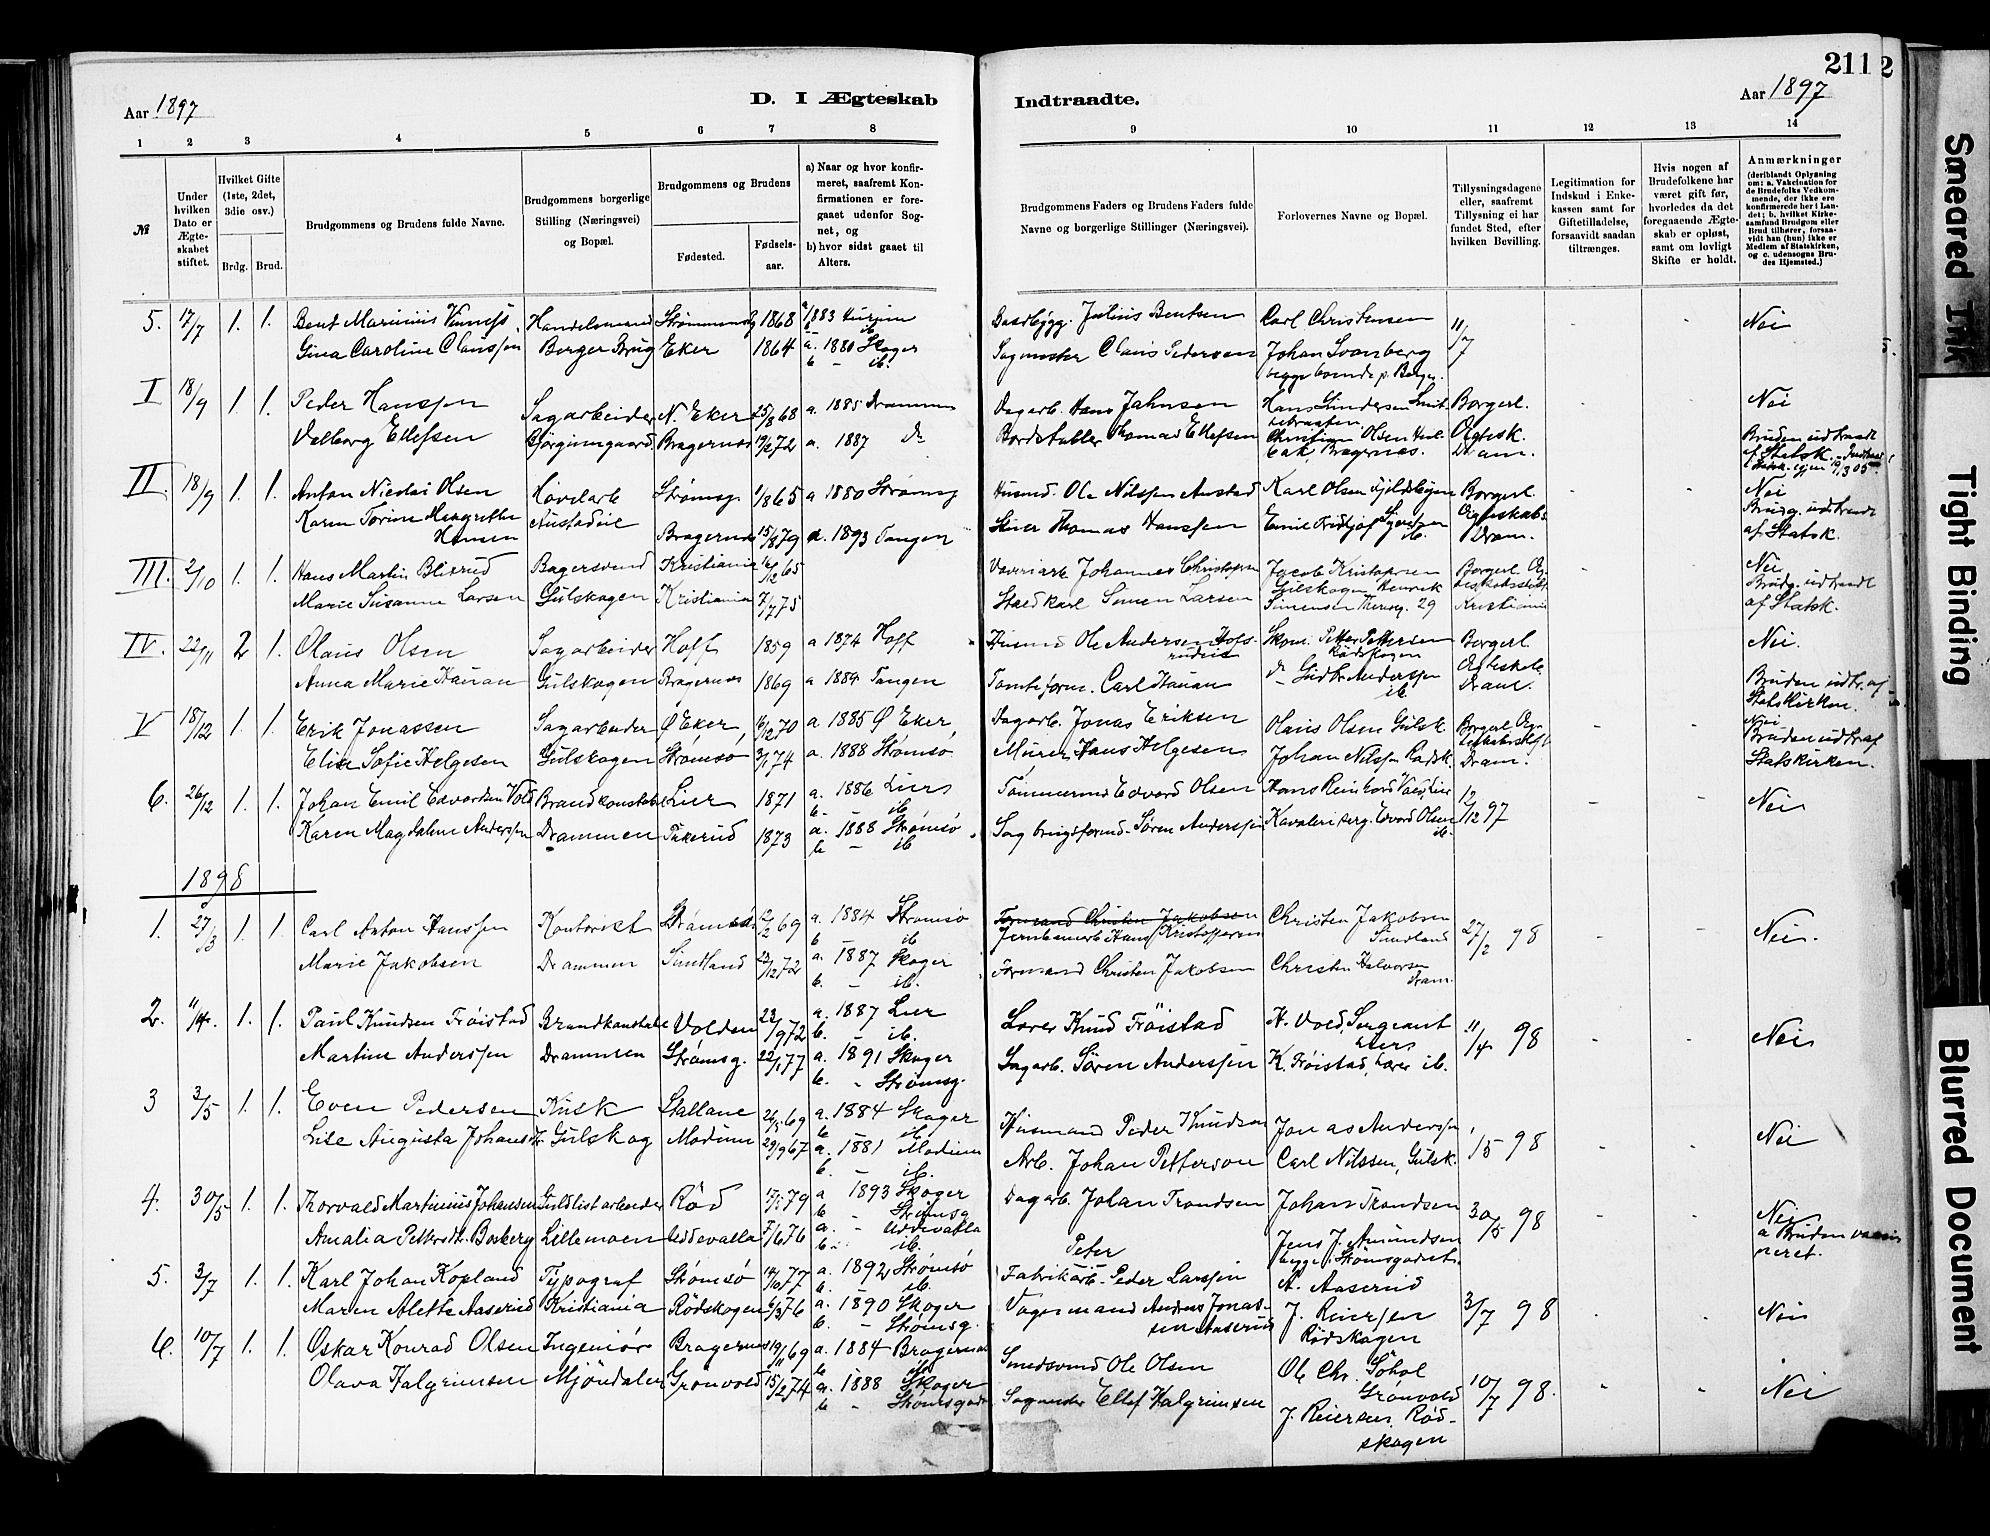 211 2
Aar 1897
D. I Ægteskab
Indtraadte.
Aar 1897
1 2 3 4 5 6 7 8 9 10 11 12 13 14
№
Under hvilken Dato er Ægteskabet stiftet.
Hvilket Gifte (1ste, 2det, 3die osv.)
Brdg. Brud.
Brudgommens og Brudens fulde Navne.
Brudgommens borgerlige Stilling (Næringsvei) og Bopæl.
Brudgommens og Brudens
Fødested.
Fødselsaar.
a) Naar og hvor konfirmeret, saafremt Konfirmationen er foregaaet udenfor Sognet, og
b) hvor sidst gaaet til Alters.
Brudgommens Faders og Brudens Faders fulde Navne og borgerlige Stillinger (Næringsvei).
Forlovernes Navne og Bopæl.
Tillysningsdagene eller, saafremt Tillysning ei har fundet Sted, efter hvilken Bevilling.
Legitimation for Indskud i Enkekassen samt for Giftetilladelse, forsaavidt saadan tiltrænges.
Hvis nogen af Brudefolkene har været gift før, hvorledes da det foregaaende Ægteskab er opløst, samt om lovligt Skifte er holdt.
Anmærkninger
(deriblandt Oplysning om: a. Vakcination for de Brudefolks Vedkommende, der ikke ere konfirmerede her i Landet; b. hvilket Kirkesamfund Brudgom eller Brud tilhører, forsaavidt han (hun) ikke er Medlem af Statskirken, og c. udensogns Brudes Hjemsted.)
5. 17/7 1. 1. Bent Marinius Handelsmand 1868 1883 Julius Bentsen Carl Christensen 11/7 Nei
Gina Caroline Claussen Borger Brug Eker 1864 a. 1880 Skoger Claus Pedersen Johan Svanberg
b - ib.
I 18/9 1. 1. Peder Hanssen Sagarbeider N. Eker 25/8 68 a. 1885 Drammen Dagarb. Hans Jahnsen Hans Gundersen Borgerl. Nei
Valborg Ellefsen Bragernes 19/2 72 a. 1887 do Thomas Ellefsen Christian Olsen Ægtesk. Bruden udtraadt
Bragernes. Dram. af Statsk.
II 18/9 1. 1. Anton Nicolai Olsen Strømsg. 1/8 65 a 1880 Strømsg Husmd. Ole Nilssen Austad Karl Olsen Borgerl. Nei
Karen Torine Margrethe Bragernes 15/8 79 a. 1893 Tangen Thomas Hanssen Emil Ægteskabs. Brudg. udtraadt
Hansen Dram. af Statsk.
III. 2/10 1. 1. Hans Martin Blixrud Bagersvend Kristiania 16/12 65 Johannes Christophersen Jacob Kristophersen Borgerl. Nei
Marie Susanne Larsen Gulskogen Kristiania 7/7 75 Staldkarl Simen Larsen Gulskogen Henrik Brudg. udtraadt
Simensen 29 Kristiania af Statsk.
IV. 22/11 2 1. Olaus Olsen Sagarbeider Hoff 1859 a 1874 Hoff Husmd Ole Andersen Skom. Petter Pettersen Borgerl. Nei.
Rødskogen
Anna Marie Hauan Gulskogen Bragernes 1869 a 1884 Tangen Tomteform. Carl Hauan Anderssen Ægteskab. Dram. Bruden udtr. af Statskirken.
V 18/12 1. 1. Erik Jonassen Sagarbeider Ø Eker 16/12 70 a. 1885 Ø Eker, Dagarb. Jonas Eriksen Olaus Olsen Gulsk Borgerl. Nei
Elise Sofie Helgesen Gulskogen Strømsø 3/1 74 a. 1888 Strømsø Murer Hans Helgesen Johan Nilssen Dram. Bruden udtr af Statskirken.
6. 26/12 1. 1. Johan Emil Edvardsen Vold Brandkonstabel Lier 1871 a. 1886 Liers Tømmermd Edvard Olsen Hans Reinhard Vold, Lier 12/12 97 Nei
b. - ib
Karen Magdalene Anderssen Drammen Pukerud 1873 a. 1888 Strømsø Søren Anderssen Kavaleriserg. Edvard Olsen
b - ib ib.
1898
1. 27/3 1. 1. Carl Anton Hanssen Kontorist Strømsø 12/2 69 a. 1884 Strømsø Formand Christen Jakobsen Christen Jakobsen 27/2 98 Nei.
b - ib Hans Kristoffersen Sundland
Marie Jakobsen Drammen Sundland 23/12 72 a. 1887 Skoger Formand Christen Jakobsen Christen Halvorsen
b. - ib. Dram.
2. 11/4. 1. 1. Paul Knudsen Frøistad Brandkonstabel Volden 23/9 72 a. 1887 Lier Lærer Knud Frøistad H. Vold, Sergeant 11/4 98 Nei
b. ib. Liers
Martine Anderssen Drammen Strømsg. 22/1 77 a. 1891 Skoger Sagarb. Søren Anderssen K. Frøistad, Lærer ib.
b. - Strømsg.
3 3/5 1. 1. Even Pedersen Kusk Stallane 26/5 69 a. 1884 Skoger Husmand Peder Knudsen Jonas Anderssen 1/5 98 Nei
b ib.
Lise Augusta Johansdtr Gulskog Modum 29/9 67 a. 1881 Modum Arb. Johan Petterson Carl Nilssen, Gulsk.
b. - ib.
4. 30/5 1. 1. Thorvald Martinius Johansen Guldlistarbeider Rød 17/5 79 a 1893 Skoger Dagarb. Johan Trondsen Johan Trondsen 30/5 98 Nei
b - Strømsg
Amalia Pettersdtr. Boxberg Lillemoen Uddevalla 7/6 76 a. - Uddevalla Jens J. Amundsen a Bruden vaccineret.
b. - ib. Peter begge Strømsgodset.
5. 3/7 1. 1. Karl Johan Kopland Typograf Strømsø 14/10 77 a. 1892 Strømsø Fabrikarb. Peder Larssen A. Aaserud 3/7 98 Nei
b. ib.
Maren Alette Aaserud Kristiania Rødskogen 6/3 76 a. 1890 Skoger Vognmand Anders Jonassen Aaserud J. Reierssen
b. - Strømsg. Rødskogen
6. 10/7 1. 1. Oskar Konrad Olsen Ingeniør Bragernes 19/11 69 a. 1884 Bragernes Smedsvend Ole Olsen Ole Chr. Søhol 10/7 98. Nei
b ib Grønvold
Olava Halgrimsen Mjøndalen Grønvold 15/2 74 a. 1888 Skoger Sagmester Ellef Halgrimsen J. Reiersen, Rødskogen
b - Strømsgodset
Smeared Ink
Tight Binding
Blurred Document